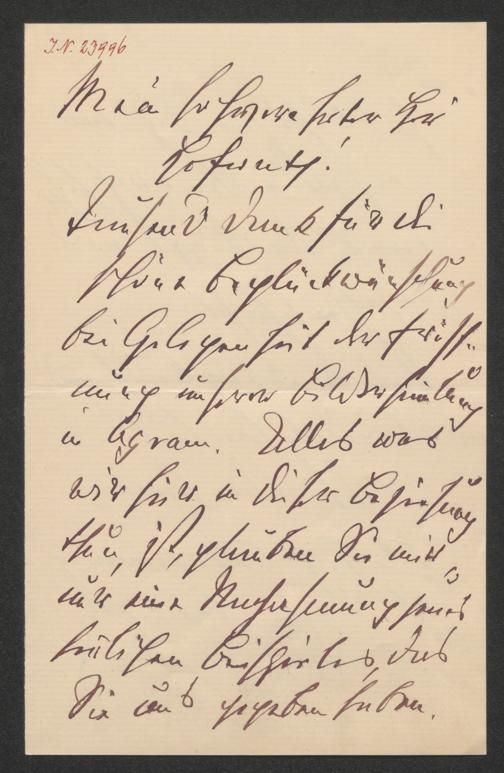 I.N. 23996
Mein hochverehrter Herr
Hofrath!
Tausend Dank für die
schöne Beglückwünschung
bei Gelegenheit der Eröff-
nung unserer Bildersammlung
in Agram. Alles was
wir hier in dieser Beziehung
thun, ist, glauben Sie mir,
nur eine Nachahmung jenes
herrlichen Beispieles, das
Sie uns gegeben haben.